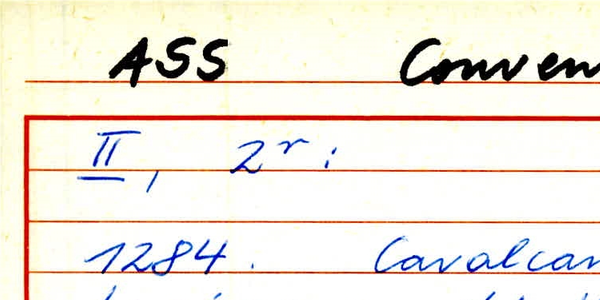 ASS Conven
II, 2r:
1284. Cavalcan